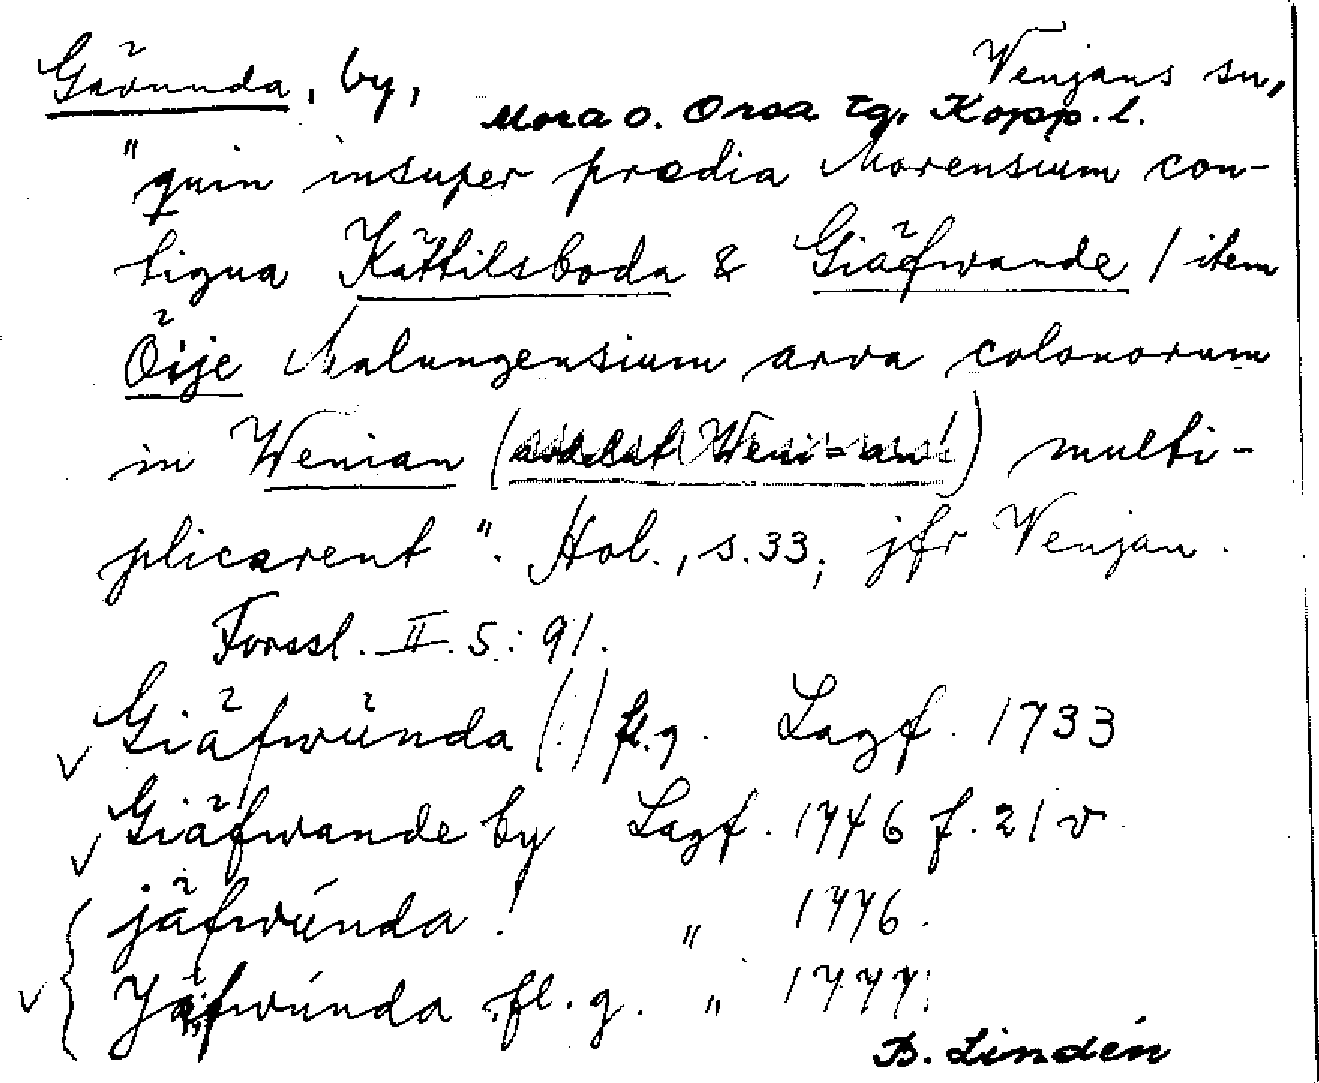 Gävunda, by, Venjans sn,
Mora o. Orsa tg. Kopp. l.
"quin insuper prædia Morensium con-
tigua Kättilsboda & Giäfwande / item
Öije Malungensium arva colonorum
in Wenian ( ) multi-
plicarent". Hol., s. 33, jfr Venjan.
Forssl. II. s: 91.
Giäfwünda (!) fl.g. Lagf. 1733
Giäfwande by Lagf. 1746 f. 21 v
jäfwúnda! " 1776.
Jäfwúnda fl.g. " 1777.
B. Lindén